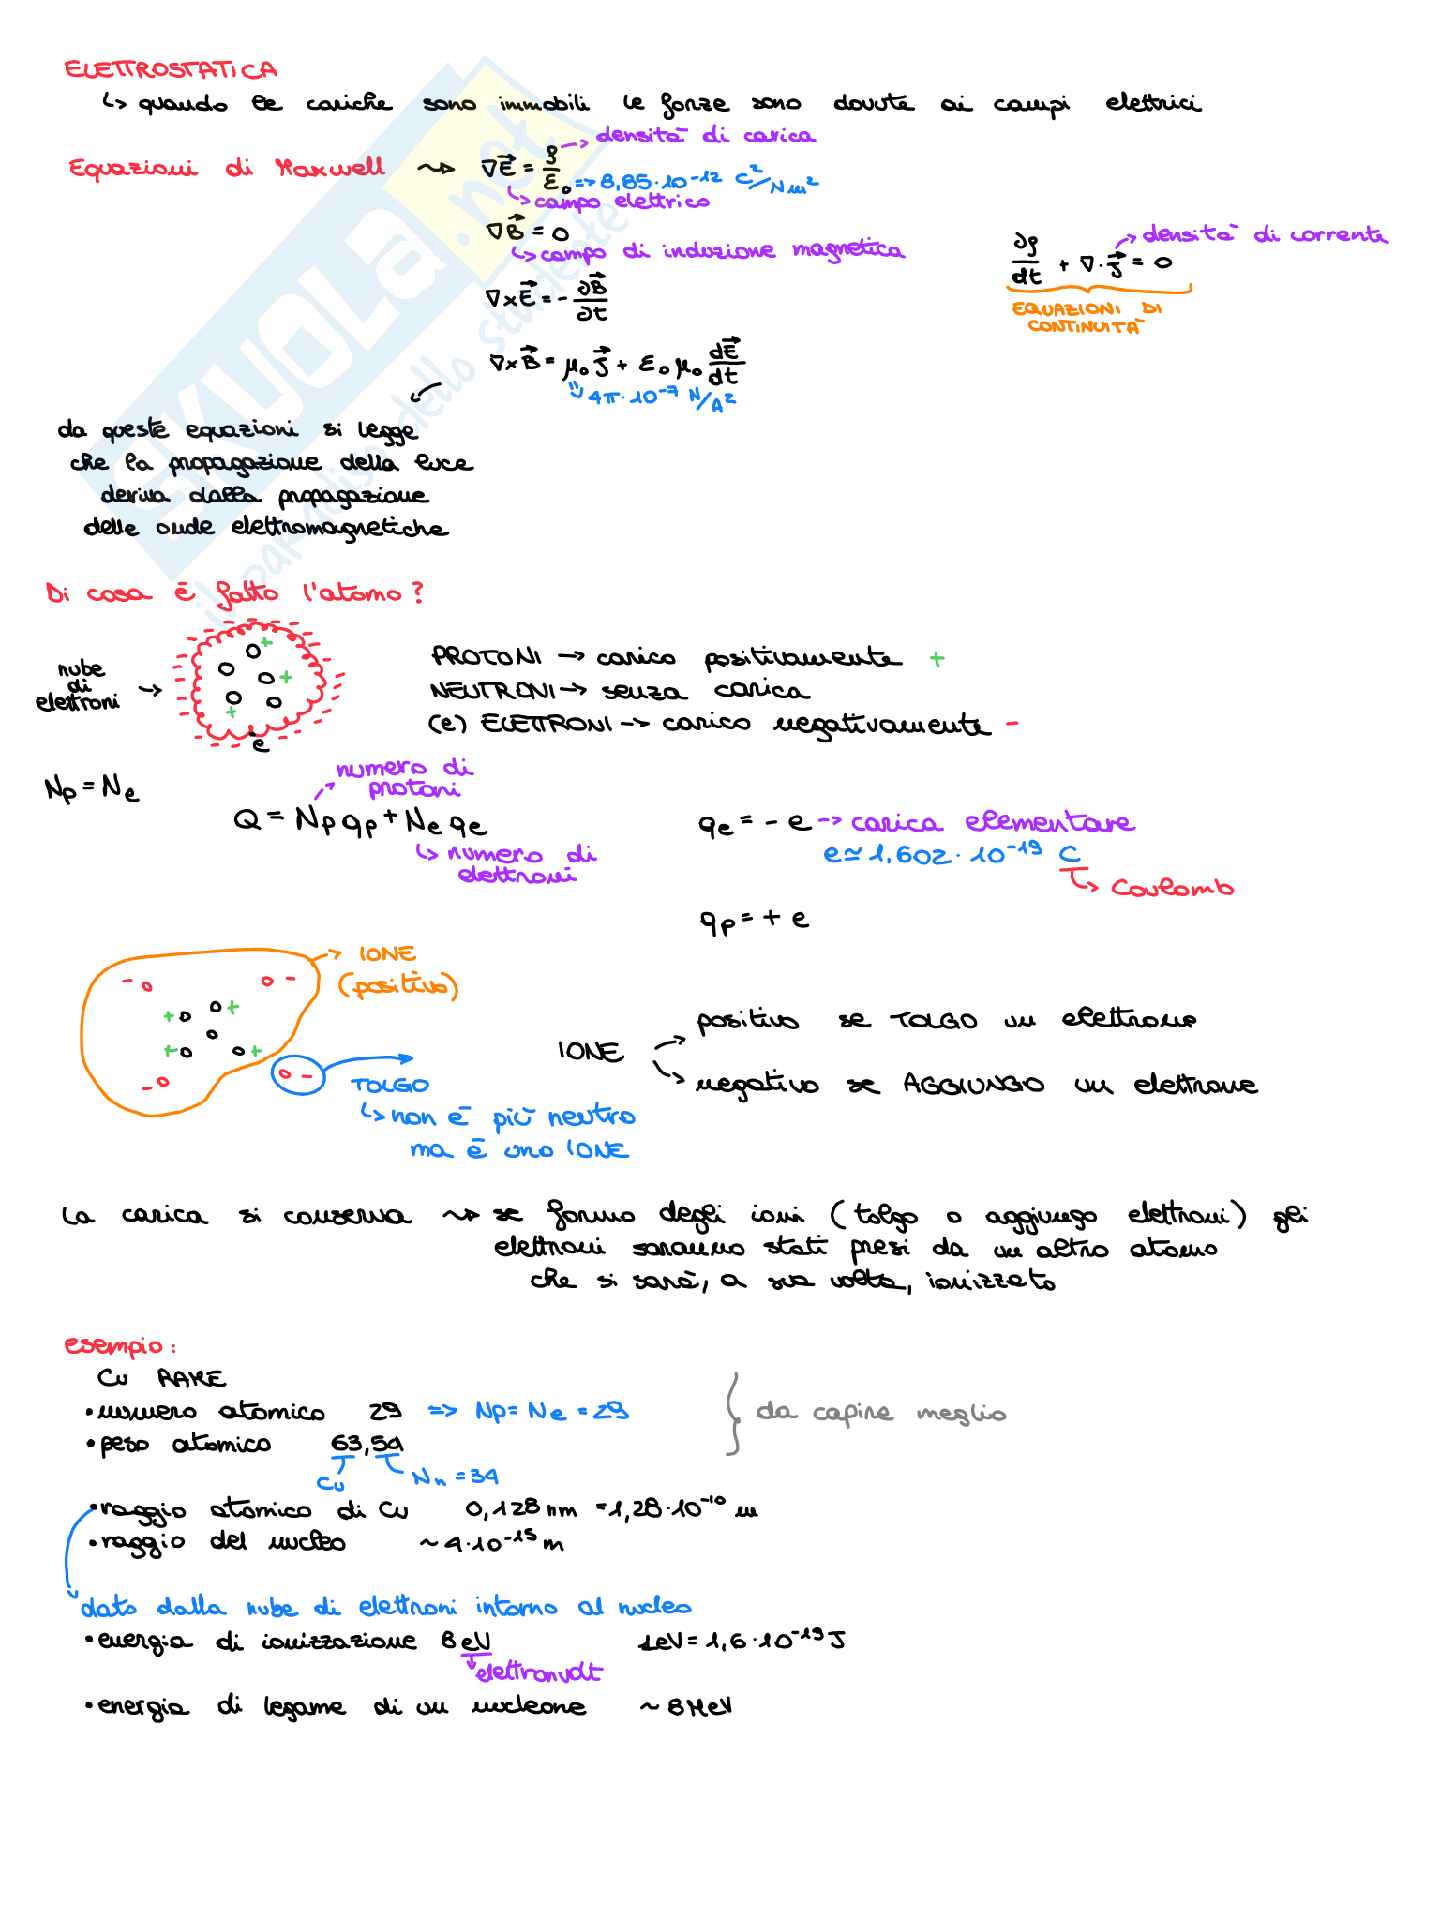 ELETTROSTATICA
↳ quando le cariche sono immobili le forze sono dovute ai campi elettrici
Equazioni di Maxwell ⇝ ∇E⃗ = ρ/ε₀ → densità di carica
=> 8,85·10⁻¹² C²/Nm²
↳ campo elettrico
∇B⃗ = 0
↳ campo di induzione magnetica
∇×E⃗ = - ∂B⃗/∂t
∇×B⃗ = μ₀J⃗ + ε₀μ₀ dE⃗/dt
4π·10⁻⁷ N/A²
∂ρ/dt + ∇·J⃗ = 0 → densità di corrente
EQUAZIONI DI
CONTINUITÀ
da queste equazioni si legge
che la propagazione della luce
deriva dalla propagazione
delle onde elettromagnetiche
Di cosa è fatto l'atomo?
nube
di
elettroni →
e
PROTONI → carico positivamente +
NEUTRONI → senza carica
(e) ELETTRONI → carico negativamente -
Np = Ne
Q = Np qp + Ne qe
numero di
protoni
↳ numero di
elettroni
qe = - e → carica elementare
e ≃ 1,602·10⁻¹⁹ C
↳ Coulomb
qp = + e
→ IONE
(positivo)
TOLGO
↳ non è più neutro
ma è uno IONE
IONE
positivo se TOLGO un elettrone
negativo se AGGIUNGO un elettrone
La carica si conserva ⇝ se formo degli ioni (tolgo o aggiungo elettroni) gli
elettroni saranno stati presi da un altro atomo
che si sarà, a sua volta, ionizzato
esempio:
Cu RAME
• numero atomico 29 => Np = Ne = 29
• peso atomico 63,54
Cu
Nn = 34
da capire meglio
• raggio atomico di Cu 0,128 nm = 1,28·10⁻¹⁰ m
• raggio del nucleo ~ 4·10⁻¹⁵ m
dato dalla nube di elettroni intorno al nucleo
• energia di ionizzazione 8 eV 1eV = 1,6·10⁻¹⁹ J
elettronvolt
• energia di legame di un nucleone ~ 8 MeV
SKUOLA.net
il paradiso dello studente